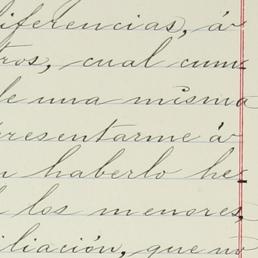 diferencias, á
tros, cual cum-
de una misma
presentarme á
n haberlo he-
los menores,
iliación, que no